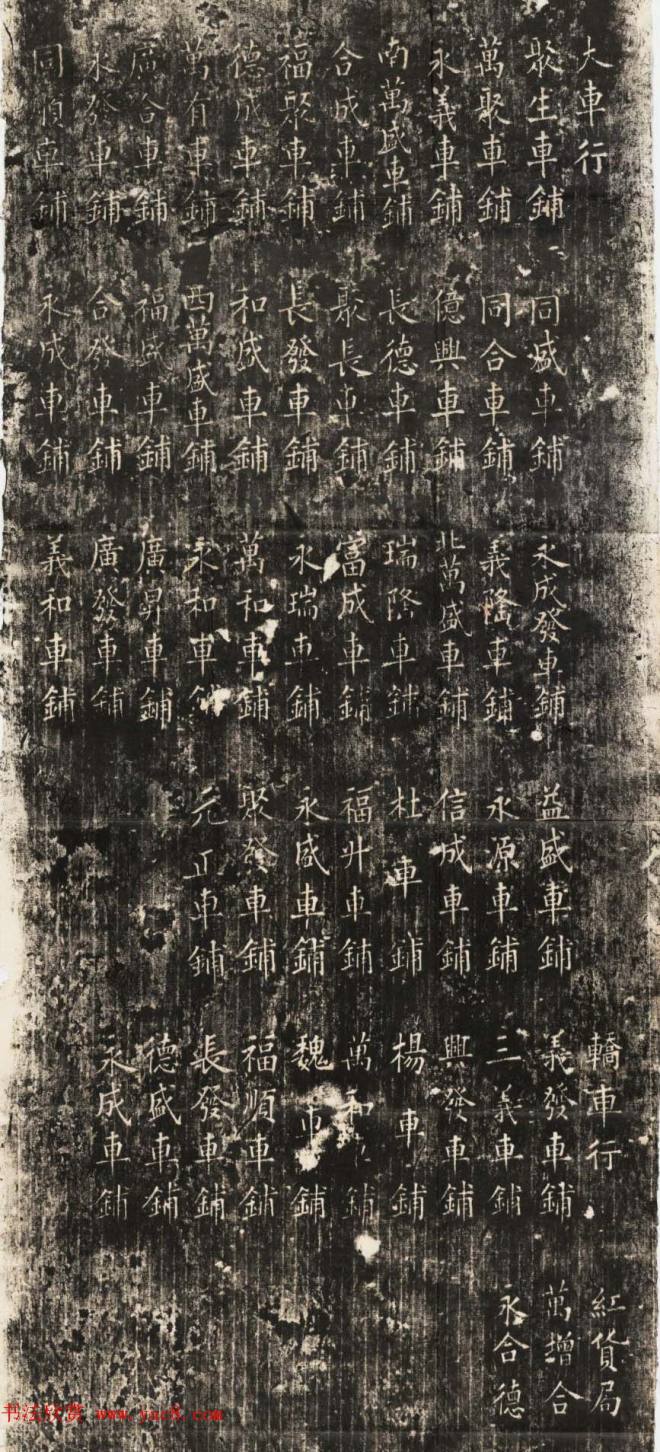 大車行
聚生車鋪
萬聚車鋪
永義車鋪
南萬盛車鋪
合成車鋪
福聚車鋪
德成車鋪
萬有車鋪
廣合車鋪
永發車鋪
同順車鋪
同盛車鋪
同合車鋪
億興車鋪
長德車鋪
聚長車鋪
長發車鋪
和盛車鋪
西萬盛車鋪
福盛車鋪
合發車鋪
永成車鋪
永成發車鋪
義隆車鋪
北萬盛車鋪
瑞隆車鋪
富成車鋪
永瑞車鋪
萬和車鋪
永和車鋪
廣昇車鋪
廣發車鋪
義和車鋪
益盛車鋪
永源車鋪
信成車鋪
杜車鋪
福升車鋪
永盛車鋪
聚發車鋪
元正車鋪
轎車行
義發車鋪
三義車鋪
興發車鋪
楊車鋪
萬和車鋪
魏車鋪
福順車鋪
長發車鋪
德盛車鋪
永成車鋪
紅貨局
萬增合
永合德
书法欣赏 www.yac8.com